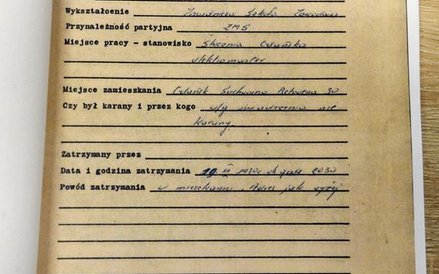 Wykształcenie Zasadnicza Szkoła Zawodowa
Przynależność partyjna ZMS
Miejsce pracy - stanowisko Stocznia Gdańska
elektromonter
Miejsce zamieszkania Gdańsk Suchanino 30
Czy był karany i przez kogo wg oświadczenia nie
karany
Zatrzymany przez
Data i godzina zatrzymania 2030
Powód zatrzymania w mieszkaniu. Adres jak wyżej